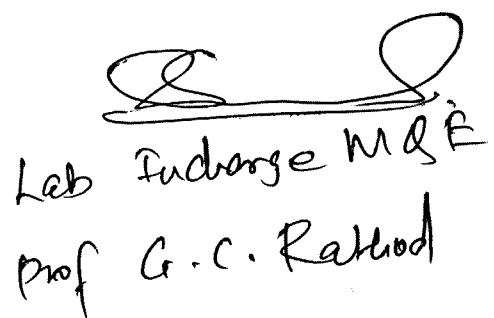 Lab Incharge MQE
Prof G.C. Rathod